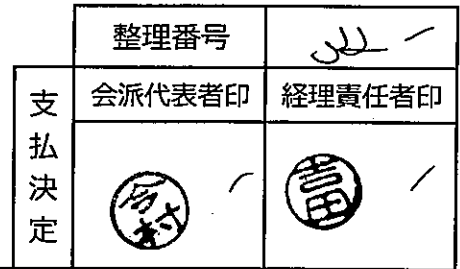 整理番号
支払決定
会派代表者印 経理責任者印
今村 吉田